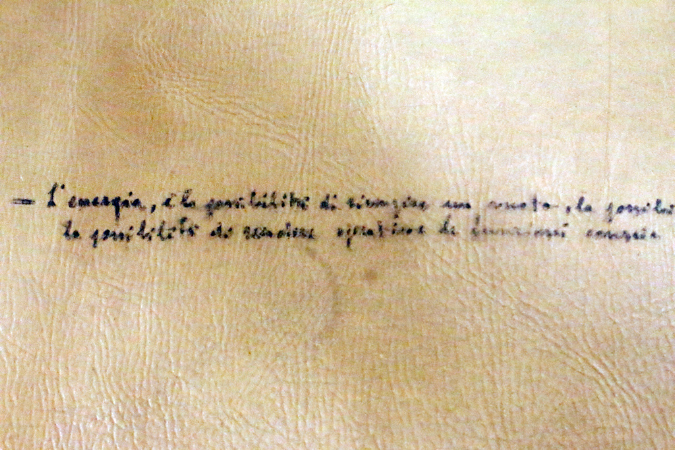 = L'energia, è la possibilità di riempire un vuoto, la possibi
la possibilità di rendere operative le funzioni